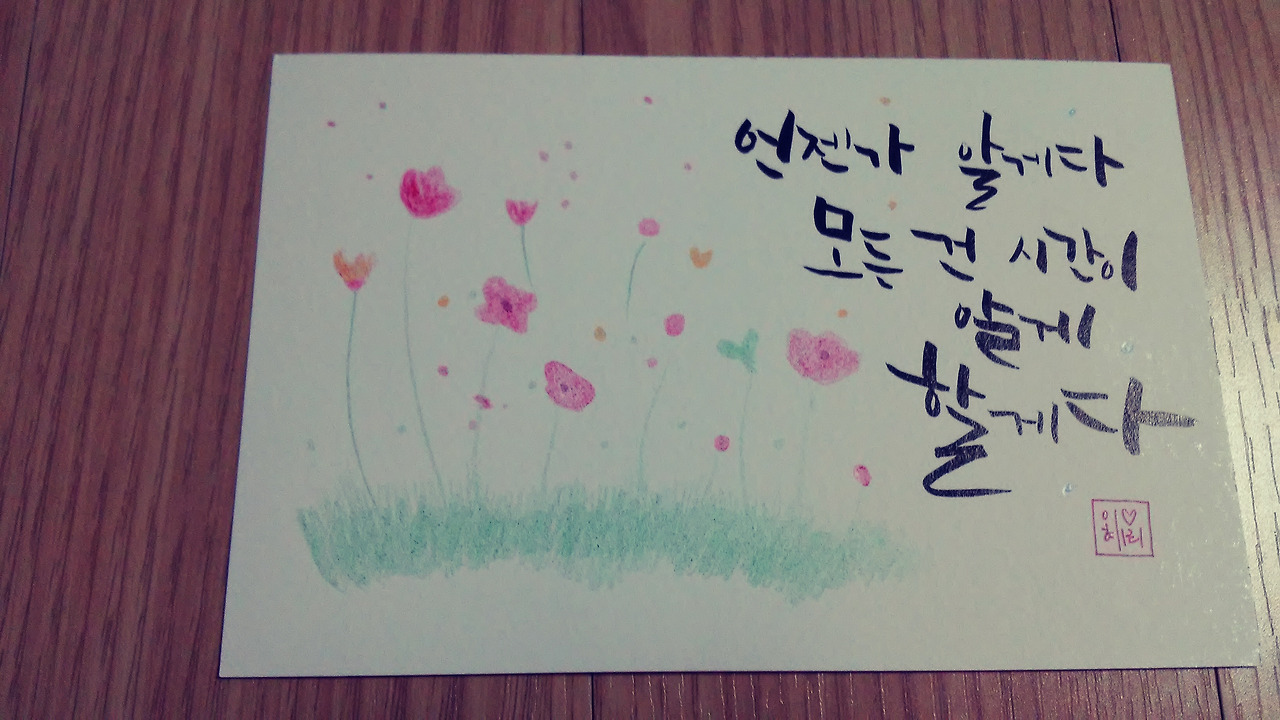 언젠가 알게다
모든 건 시간이
알게
할게다